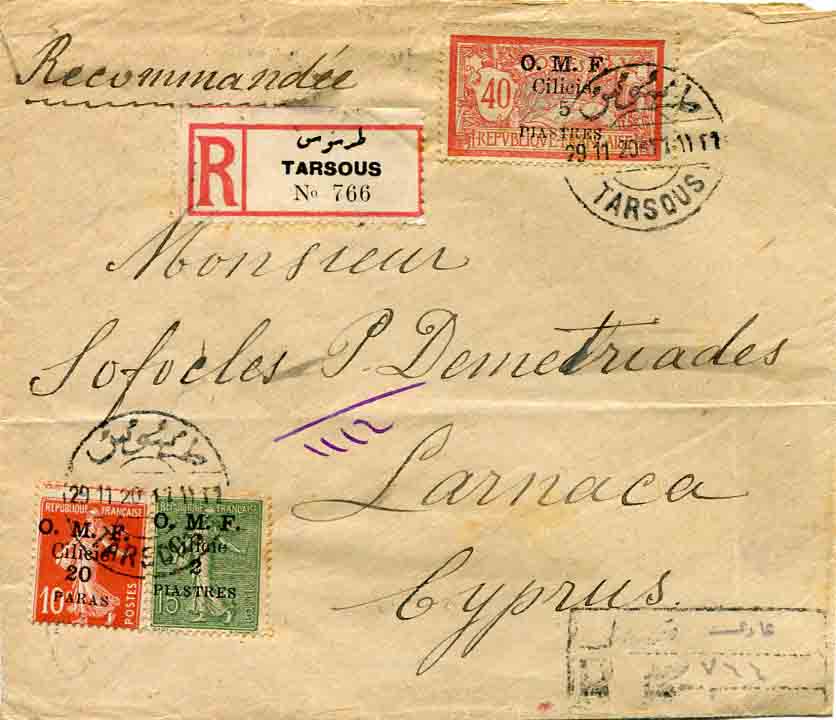 Recommandée
O. M. F.
Cilicie
5
PIASTRES
40
REPVBLIQVE
29 11 20
TARSOUS
R
طرسوس
TARSOUS
No 766
Monsieur
Sofocles P. Demetriades
1112
Larnaca
Cyprus.
طرسوس
29 11 20
TARSOUS
REPUBLIQUE FRANÇAISE
O. M. F.
Cilicie
20
PARAS
10
POSTES
O. M. F.
Cilicie
2
PIASTRES
15
٧٦٦